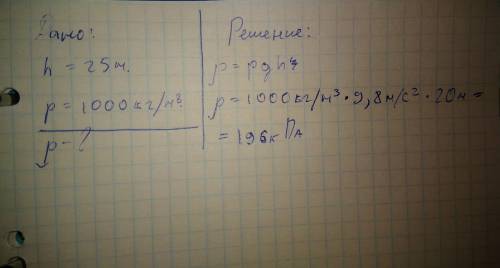 Дано:
h = 25 м.
p = 1000 кг/м³
p - ?
Решение:
p = pgh
p = 1000 кг/м³ · 9,8 м/с² · 20 м =
= 196 к Па